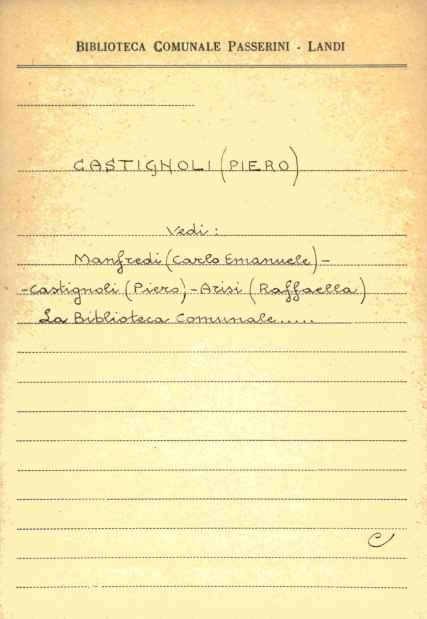 BIBLIOTECA COMUNALE PASSERINI - LANDI
CASTIGNOLI (PIERO)
Vedi:
Manfredi (Carlo Emanuele) -
-Castignoli (Piero) -Arisi (Raffaella)
La Biblioteca Comunale.....
C